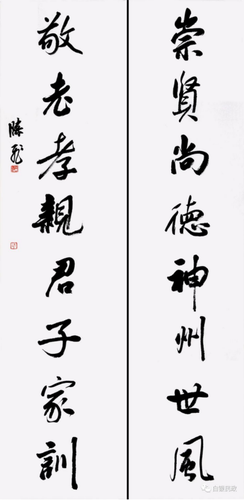 崇賢尚德神州世風
敬老孝親君子家訓